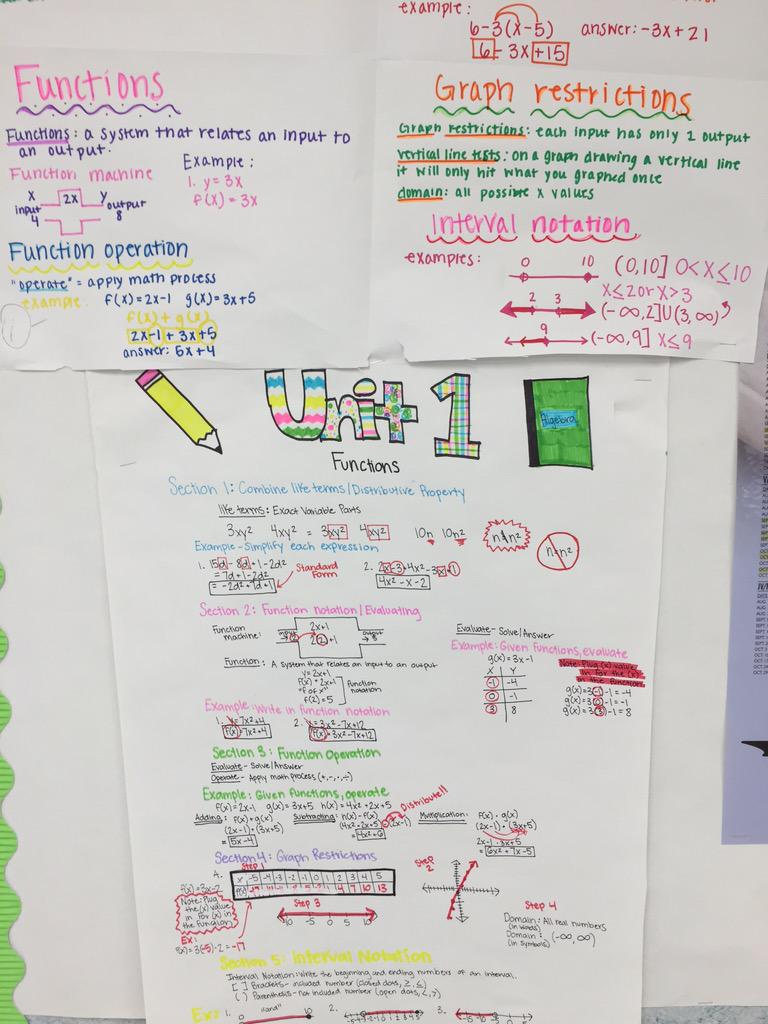 example:
6-3(x-5) answer: -3x+21
6 - 3x +15
Functions
Functions: a system that relates an input to
an output.
Function machine
x 2x y
input output
4 8
Example:
1. y = 3x
f(x) = 3x
Function operation
"operate" = apply math process
example: f(x)=2x-1 g(x)=3x+5
f(x) + g(x)
2x-1 + 3x+5
answer: 5x+4
Graph restrictions
Graph restrictions: each input has only 1 output
vertical line tests: on a graph drawing a vertical line
it will only hit what you graphed once
domain: all possible x values
Interval notation
examples:
0 10 (0,10] 0<x≤10
x≤2 or x>3
2 3 (-∞,2]U(3,∞)
9 (-∞,9] x≤9
Unit 1
Algebra
Functions
Section 1: Combine like terms/Distributive Property
like terms: Exact Variable Parts
3xy² 4xy² = 3xy² 4xy² 10n 10n² n≠n² n=n²
Example-Simplify each expression
1. 15d - 8d + 1 - 2d²
= 7d + 1 - 2d²
= -2d² + 7d + 1
Standard
Form
2. 2x-3+4x²-3x+1
4x²-x-2
Section 2: Function notation/Evaluating
Function
machine:
input
2x+1
2( )+1
output
Function: A system that relates an input to an output
y=2x+1
f(x)=2x+1
"f of x"
f(2)=5
function
notation
Example: Write in function notation
1. y=7x²+4
f(x)=7x²+4
2. y=3x²-7x+12
f(x)=3x²-7x+12
Evaluate- Solve/Answer
Example: Given functions, evaluate
g(x)=3x-1
x y
-1 -4
0 -1
3 8
Note: Plug (x) value
in for the (x)
in the function
g(x)=3(-1)-1=-4
g(x)=3(0)-1=-1
g(x)=3(3)-1=8
Section 3: Function Operation
Evaluate- Solve/Answer
Operate- Apply math process (+,-,·,÷)
Example: Given functions, operate
f(x)=2x-1 g(x)=3x+5 h(x)=4x²+2x+5
Distribute!!
Adding: f(x)+g(x)
(2x-1)+(3x+5)
=5x-4
Subtracting: h(x)-f(x)
(4x²+2x+5)-(2x-1)
=4x²+6
Multiplication: f(x)·g(x)
(2x-1)·(3x+5)
2x-1·3x+5
=6x²+7x-5
Section 4: Graph Restrictions
Step 1
x -5 -4 -3 -2 -1 0 1 2 3 4 5
4 7 10 13
f(x)=3x-2
Note: Plug
the (x) value
in for (x) in
the function
Ex:
f(x)=3(-5)-2=-17
Step 2
Step 3
-10 -5 0 5 10
Step 4
Domain: All real numbers
(in words)
Domain: (-∞,∞)
(in symbols)
Section 5: Interval Notation
Interval Notation: Write the beginning and ending numbers of an interval.
[ ] Brackets- included number (closed dots, ≥, ≤)
( ) Parenthesis- not included number (open dots, <, >)
Ex: 1. "and" 2. 3.
0 10